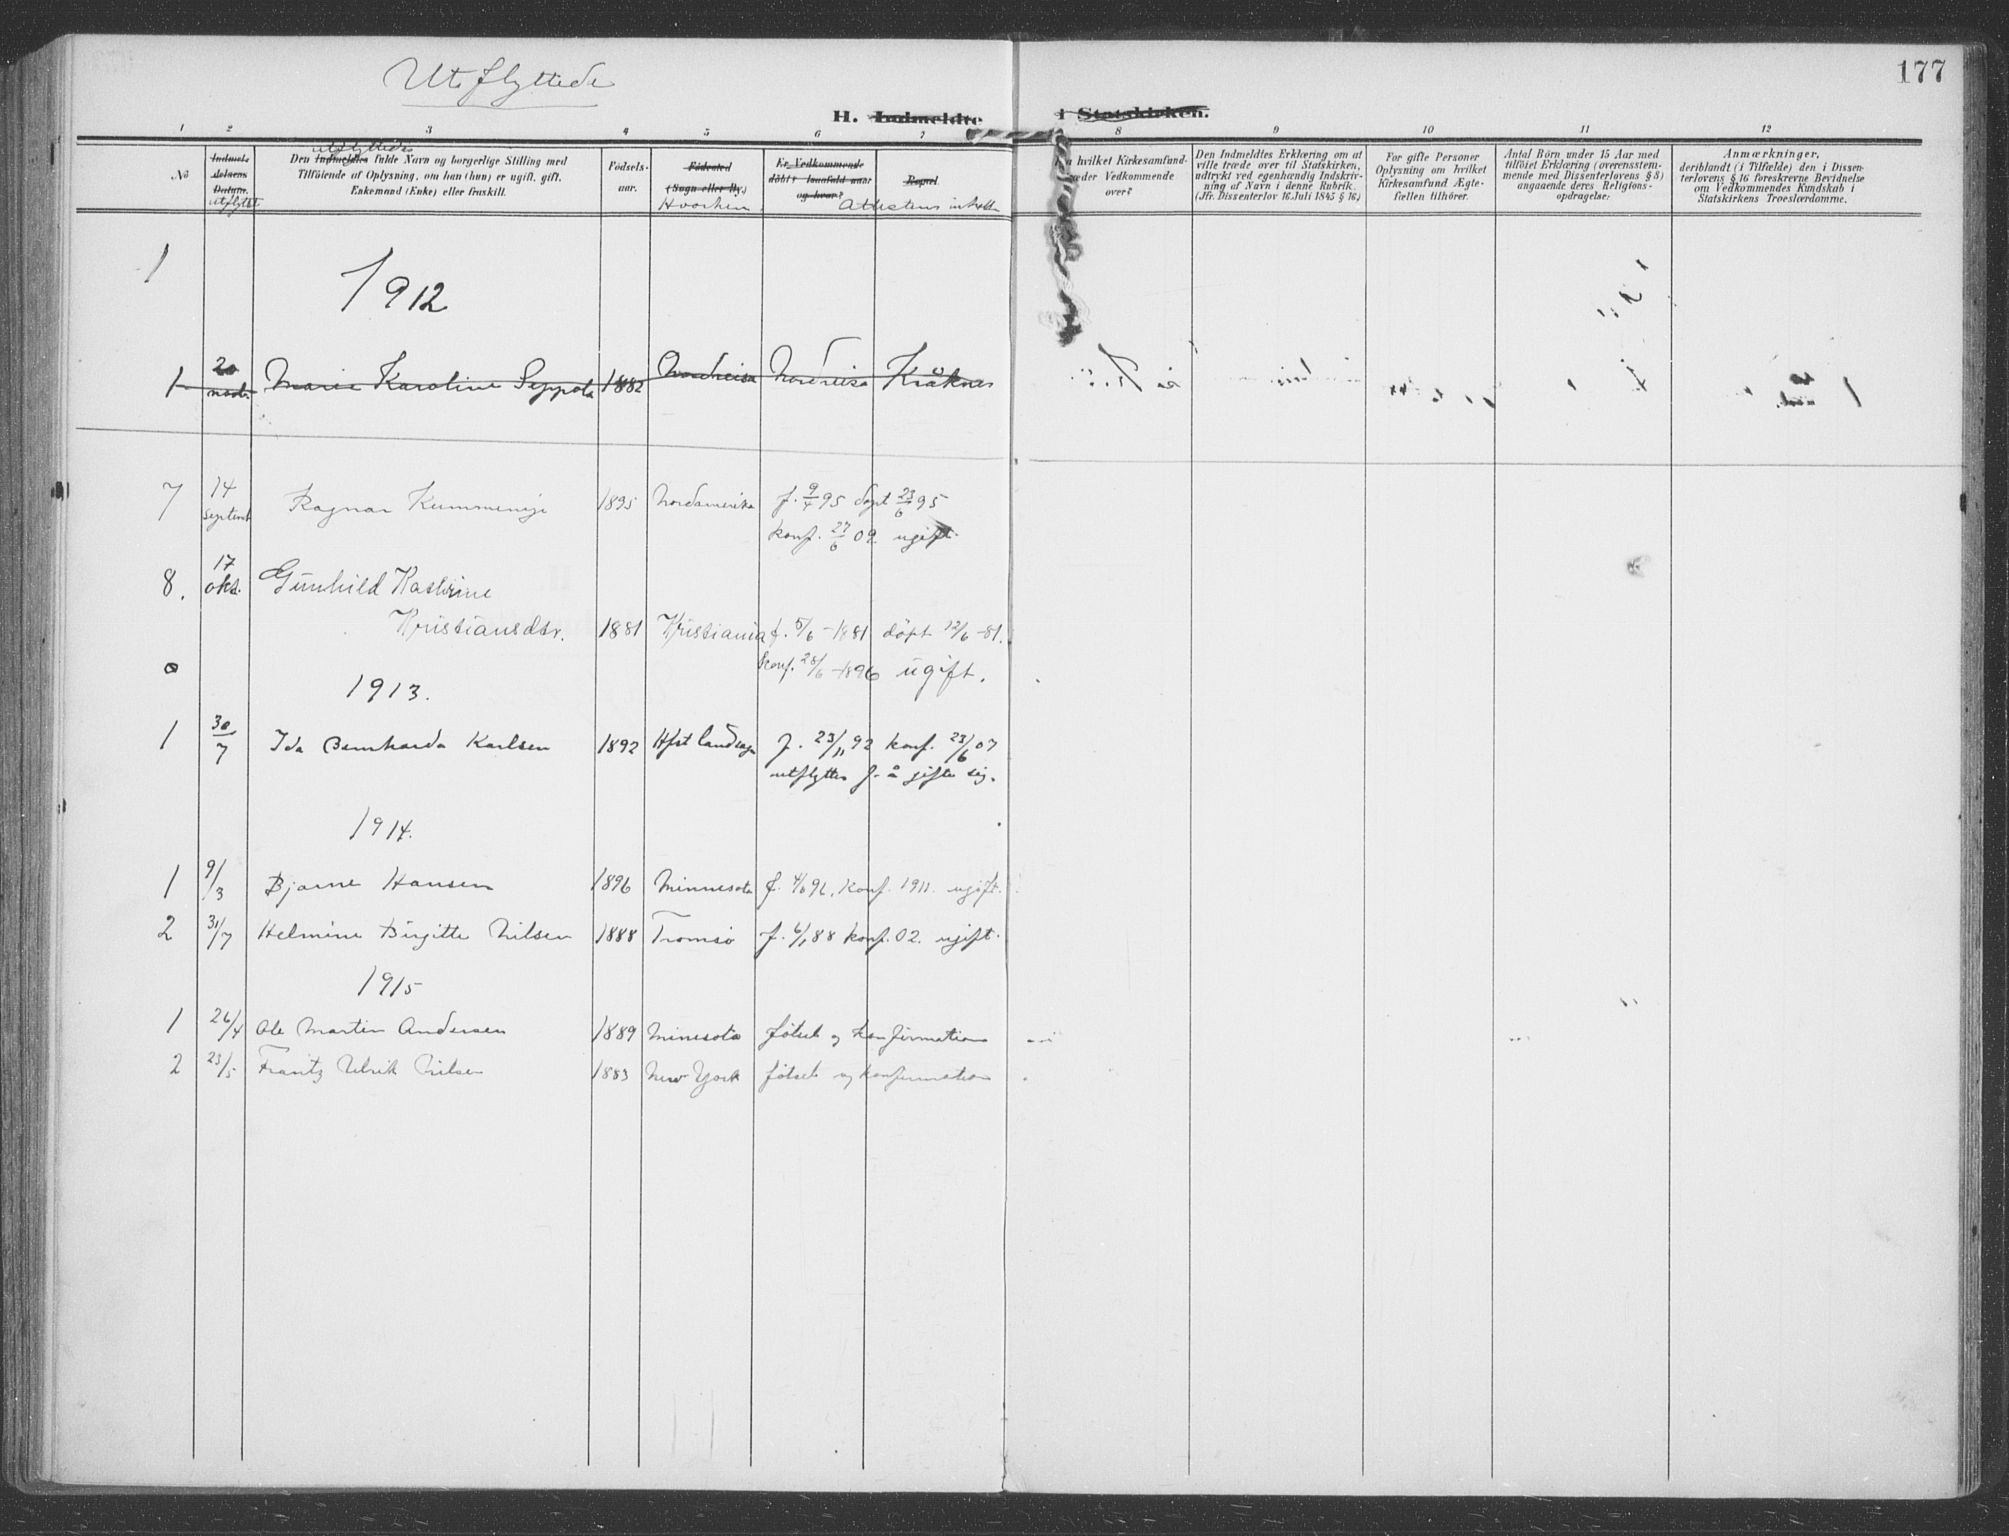 Utflyttede
177
H. Indmeldte i Statskirken.
1 2 3 4 5 6 7 8 9 10 11 12
No
Indmel-
delsens
Datum.
utflyttet
utflyttedes
Den Indmeldtes fulde Navn og borgerlige Stilling med
Tilføiende af Oplysning, om han (hun) er ugift, gift,
Enkemand (Enke) eller fraskilt.
Fødsels-
aar.
Fødested
(Sogn eller By.)
Hvorhen
Er Vedkommende
døbt? Isaafald naar
og hvor?
Bopæl
Attestens indhold
hvilket Kirkesamfund
træder Vedkommende
over?
Den Indmeldtes Erklæring om at
ville træde over til Statskirken,
udtrykt ved egenhændig Indskriv-
ning af Navn i denne Rubrik.
(Jfr. Dissenterlov 16 Juli 1845 § 16.)
For gifte Personer
Oplysning om hvilket
Kirkesamfund Ægte-
fællen tilhører.
Antal Børn under 15 Aar med
tilføiet Erklæring (overensstem-
mende med Dissenterlovens § 8)
angaaende deres Religions-
opdragelse:
Anmærkninger,
deriblandt (i Tilfælde) den i Dissen-
terlovens § 16 foreskrevne Bevidnelse
om Vedkommendes Kundskab i
Statskirkens Troeslærdomme.
1
1912
1 20 Marie Karoline Seppola 1882 Nordreisa Nordreisa Kråknes
7 14 septemb Ragnar Kummeneje 1895 Nordamerika f. 9/4 95 døpt 23/6 95
konf. 27/6 09 ugift.
8. 17 okt. Gunhild Kathrine
Kristiansdtr. 1881 Kristiania f. 5/6 - 1881 döpt 12/6 -81.
konf. 28/6 -1896 ugift.
1913.
1 30/7 Ida Bernharda Karlsen 1892 Hfst landsogn f. 23/11 92 konf. 23/6 07
utflytter f. å gifte sig.
1914.
1 9/3 Bjarne Hansen 1896 Minnesota f. 4/6 96, konf. 1911. ugift.
2 31/7 Helmine Birgitte Nilsen 1888 Tromsø f. 6/1 88 konf. 02. ugift.
1915
1 26/4 Ole Martin Andersen 1889 Minesota fötsel og konfirmation
2 23/5 Frantz Ulrik Nilsen 1883 New York fötsel og konfirmation